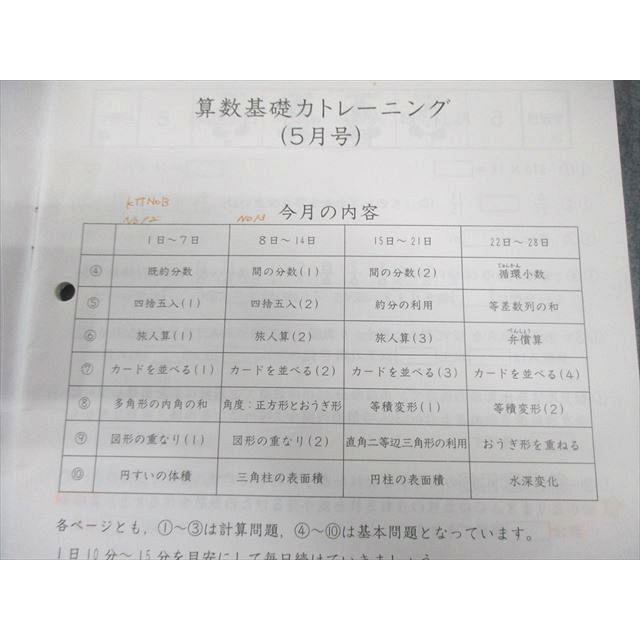 算数基礎力トレーニング
(5月号)
No12
No13
今月の内容
1日～7日 8日～14日 15日～21日 22日～28日
④ 既約分数 間の分数(1) 間の分数(2) 循環小数
じゅんかん
⑤ 四捨五入(1) 四捨五入(2) 約分の利用 等差数列の和
⑥ 旅人算(1) 旅人算(2) 旅人算(3) 弁償算
べんしょう
⑦ カードを並べる(1) カードを並べる(2) カードを並べる(3) カードを並べる(4)
⑧ 多角形の内角の和 角度:正方形とおうぎ形 等積変形(1) 等積変形(2)
⑨ 図形の重なり(1) 図形の重なり(2) 直角二等辺三角形の利用 おうぎ形を重ねる
⑩ 円すいの体積 三角柱の表面積 円柱の表面積 水深変化
各ページとも,①～③は計算問題,④～⑩は基本問題となっています。
1日10分～15分を目安にして毎日続けていきましょう